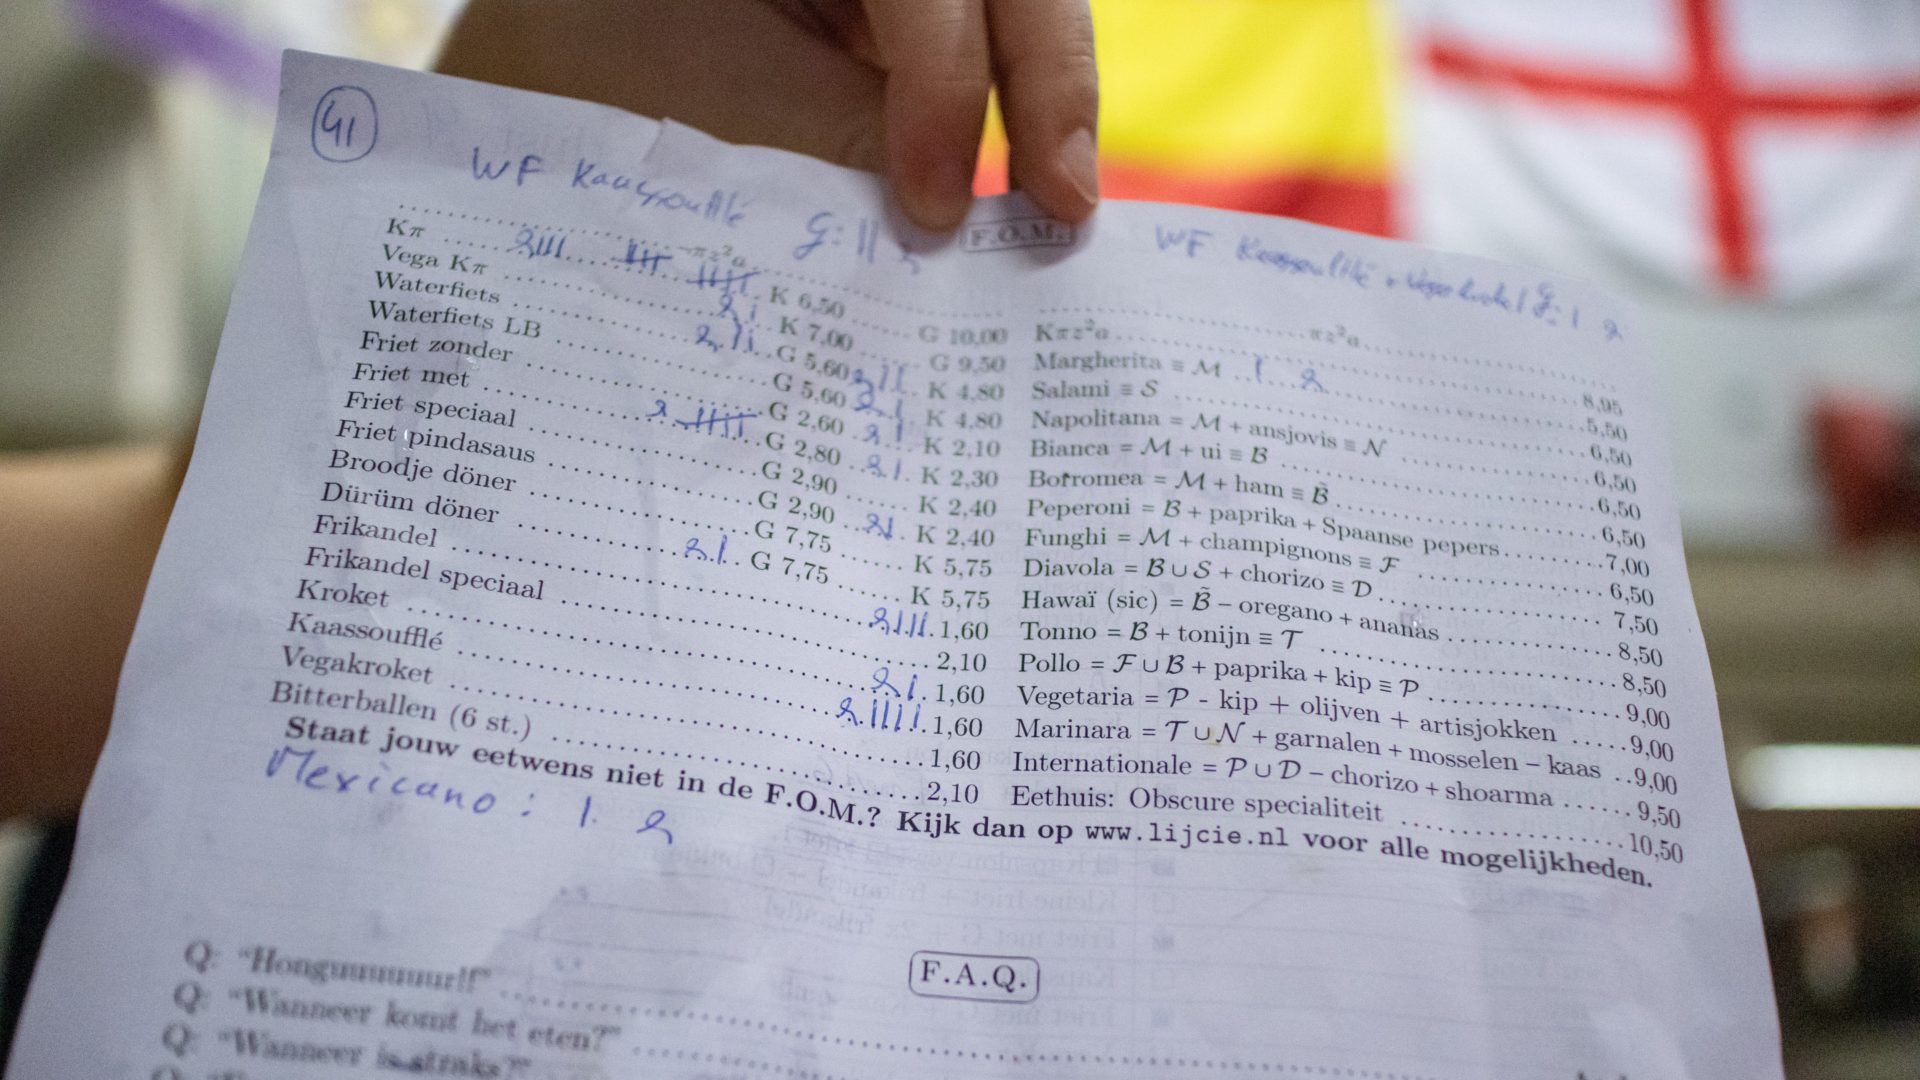 41
WF Kaassoufflé G: ||
F.O.M.
WF Kaassoufflé + Vegakroket G: |
Kπz²a
πz²a
8,95
Kπ K 6,50 G 10,00
Vega Kπ K 7,00 G 9,50
Waterfiets G 5,60 K 4,80
Waterfiets LB G 5,60 K 4,80
Friet zonder G 2,60 K 2,10
Friet met G 2,80 K 2,30
Friet speciaal G 2,90 K 2,40
Friet pindasaus G 2,90 K 2,40
Broodje döner G 7,75 K 5,75
Dürüm döner G 7,75 K 5,75
Frikandel 1,60
Frikandel speciaal 2,10
Kroket 1,60
Kaassoufflé 1,60
Vegakroket 1,60
Bitterballen (6 st.) 2,10
Margherita ≡ M 5,50
Salami ≡ S 6,50
Napolitana = M + ansjovis ≡ N 6,50
Bianca = M + ui ≡ B 6,50
Borromea = M + ham ≡ B̃ 6,50
Peperoni = B + paprika + Spaanse pepers 7,00
Funghi = M + champignons ≡ F 6,50
Diavola = B ∪ S + chorizo ≡ D 7,50
Hawaï (sic) = B̃ − oregano + ananas 8,50
Tonno = B + tonijn ≡ T 8,50
Pollo = F ∪ B + paprika + kip ≡ P 9,00
Vegetaria = P - kip + olijven + artisjokken 9,00
Marinara = T ∪ N + garnalen + mosselen − kaas 9,00
Internationale = P ∪ D − chorizo + shoarma 9,50
Eethuis: Obscure specialiteit 10,50
Staat jouw eetwens niet in de F.O.M.? Kijk dan op www.lijcie.nl voor alle mogelijkheden.
Mexicano: 1.
F.A.Q.
Q: "Honguuuuuur!!"
Q: "Wanneer komt het eten?"
Q: "Wanneer is straks?"